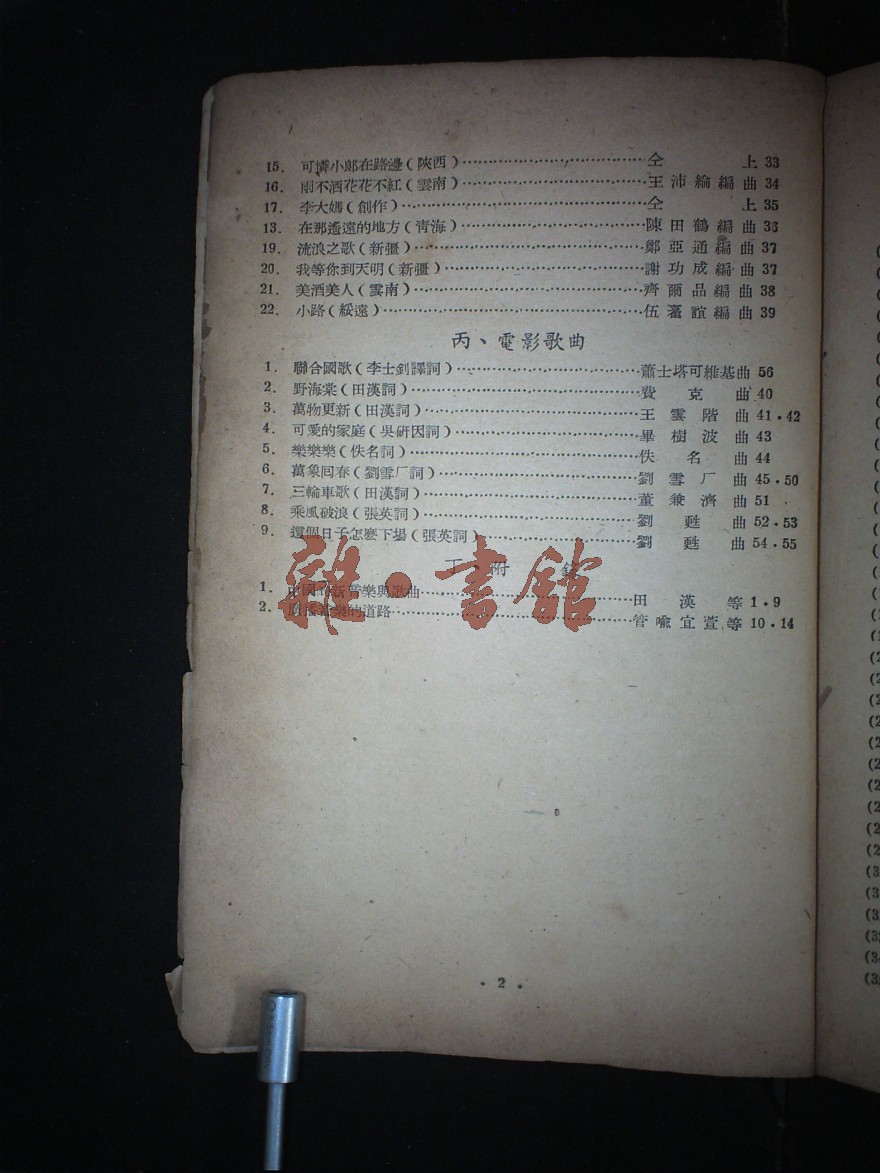 15. 可憐小郞在路邊(陝西)……………………………仝　上 33
16. 雨不洒花花不紅(雲南)……………………………王沛綸編曲 34
17. 李大媽(創作)……………………………仝　上 35
13. 在那遙遠的地方(靑海)……………………………陳田鶴編曲 36
19. 流浪之歌(新彊)……………………………鄭亞通編曲 37
20. 我等你到天明(新彊)……………………………謝功成編曲 37
21. 美酒美人(雲南)……………………………齊爾品編曲 38
22. 小路(綏遠)……………………………伍 誼編曲 39
丙、電影歌曲
1. 聯合國歌(李士釗譯詞)……………………………蕭士塔可維基曲 56
2. 野海棠(田漢詞)……………………………費克曲 40
3. 萬物更新(田漢詞)……………………………王雲階曲 41•42
4. 可愛的家庭(吳硏因詞)……………………………畢樹波曲 43
5. 樂樂樂(佚名詞)……………………………佚名曲 44
6. 萬象回春(劉雪厂詞)……………………………劉雪厂曲 45•50
7. 三輪車歌(田漢詞)……………………………董兼濟曲 51
8. 乘風破浪(張英詞)……………………………劉甦曲 52•53
9. 這個日子怎麽下場(張英詞)……………………………劉甦曲 54•55
丁、附　錄
1. 中國 新音樂與歌曲……………………………田漢等 1•9
2. 音樂的道路……………………………管喩宜萱等 10•14
雜•書館
• 2 •
(2
(2
(2
(2
(2
(2
(2
(2
(2
(3
(3
(3
(3
(3
(3